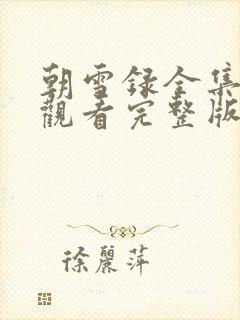 朝雪録全集
觀看完整版
徐麗萍